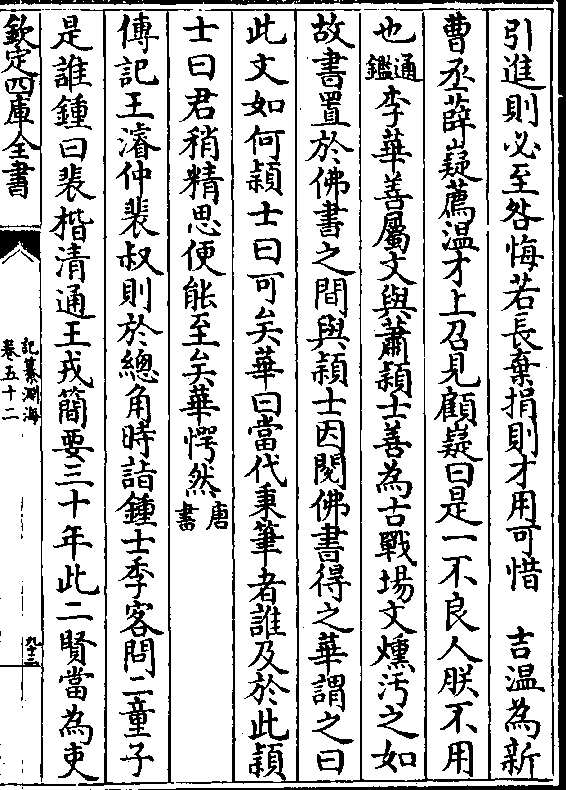 引進則必至咎悔若長棄捐則才用可惜　吉溫為新
曹丞薛嶷薦溫才上召見顧嶷曰是一不良人朕不用
也通鑑李華善屬文與蕭頴士善為古戰塲文燻汚之如
故書置於佛書之間與頴士因閱佛書得之華謂之曰
此文如何頴士曰可矣華曰當代秉筆者誰及於此頴
士曰君稍精思便能至矣華愕然唐書
傳記王濬仲裴叔則於總角時詣鍾士季客問二童子
是誰鍾曰裴楷清通王戎簡要三十年此二賢當為吏
欽定四庫全書
記纂淵海
卷五十二